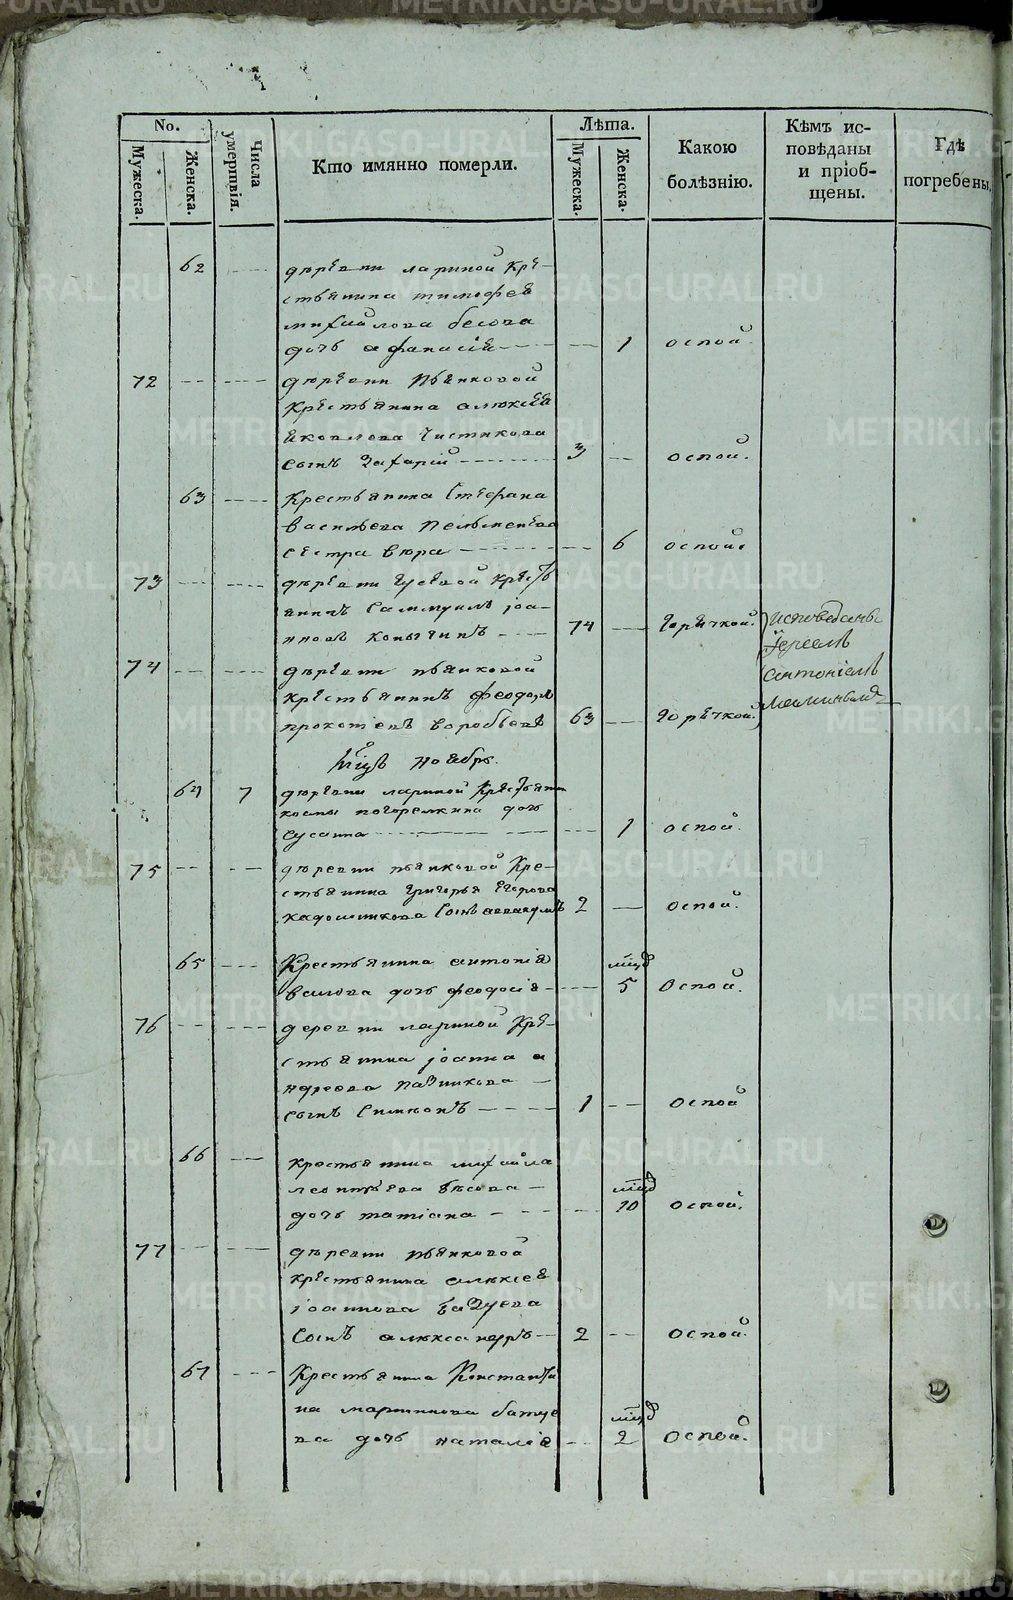 No.
Мужеска.
Женска.
Числа умертвія.
Кто имянно померли.
Лѣта.
Мужеска.
Женска.
Какою болѣзнію.
Кѣмъ ис-
повѣданы
и пріоб-
щены.
Гдѣ
погребены.
62 деревни лариной кре-
стьянина тимофея
михайлова бесова
дочь афанасія 1 оспой.
72 деревни пьянковой
крестьянина алексея
яковлева чистякова
сынъ Захарій 3 оспой.
63 Крестьянина Стефана
василева
сестра 6 оспой.
73 деревни кресть
янинъ Саммуилъ іоа-
нновъ 74 горячкой. исповеданы
Іереемъ
74 деревни пьянковой
крестьянинъ феодоръ
прокопіевъ воробьевъ 63 горячкой.
антоніемъ
Мѣцъ ноябрь.
64 7 деревни лариной крестьянина
космы погорелкина дочь
сусанна 1 оспой.
75 деревни пьянковой Кре-
стьянина григорья егорова
кадошникова сынъ аввакумъ 2 оспой.
65 Крестьянина антонія
дочь феодосія мцъ 5 Оспой.
76 деревни лариной кре-
стьянина іоанна а
ндреева
сынъ Симеонъ 1 Оспой
66 крестьянина михайла
леонтьева бѣсова
дочь татіана мцъ 10 оспой.
77 деревни пьянковой
крестьянина алексея
іоаннова
сынъ александръ 2 оспой.
67 Крестьянина Константи
на мартинова батуе
ва дочь наталія мцъ 2 Оспой.
METRIKI.GASO-URAL.RU